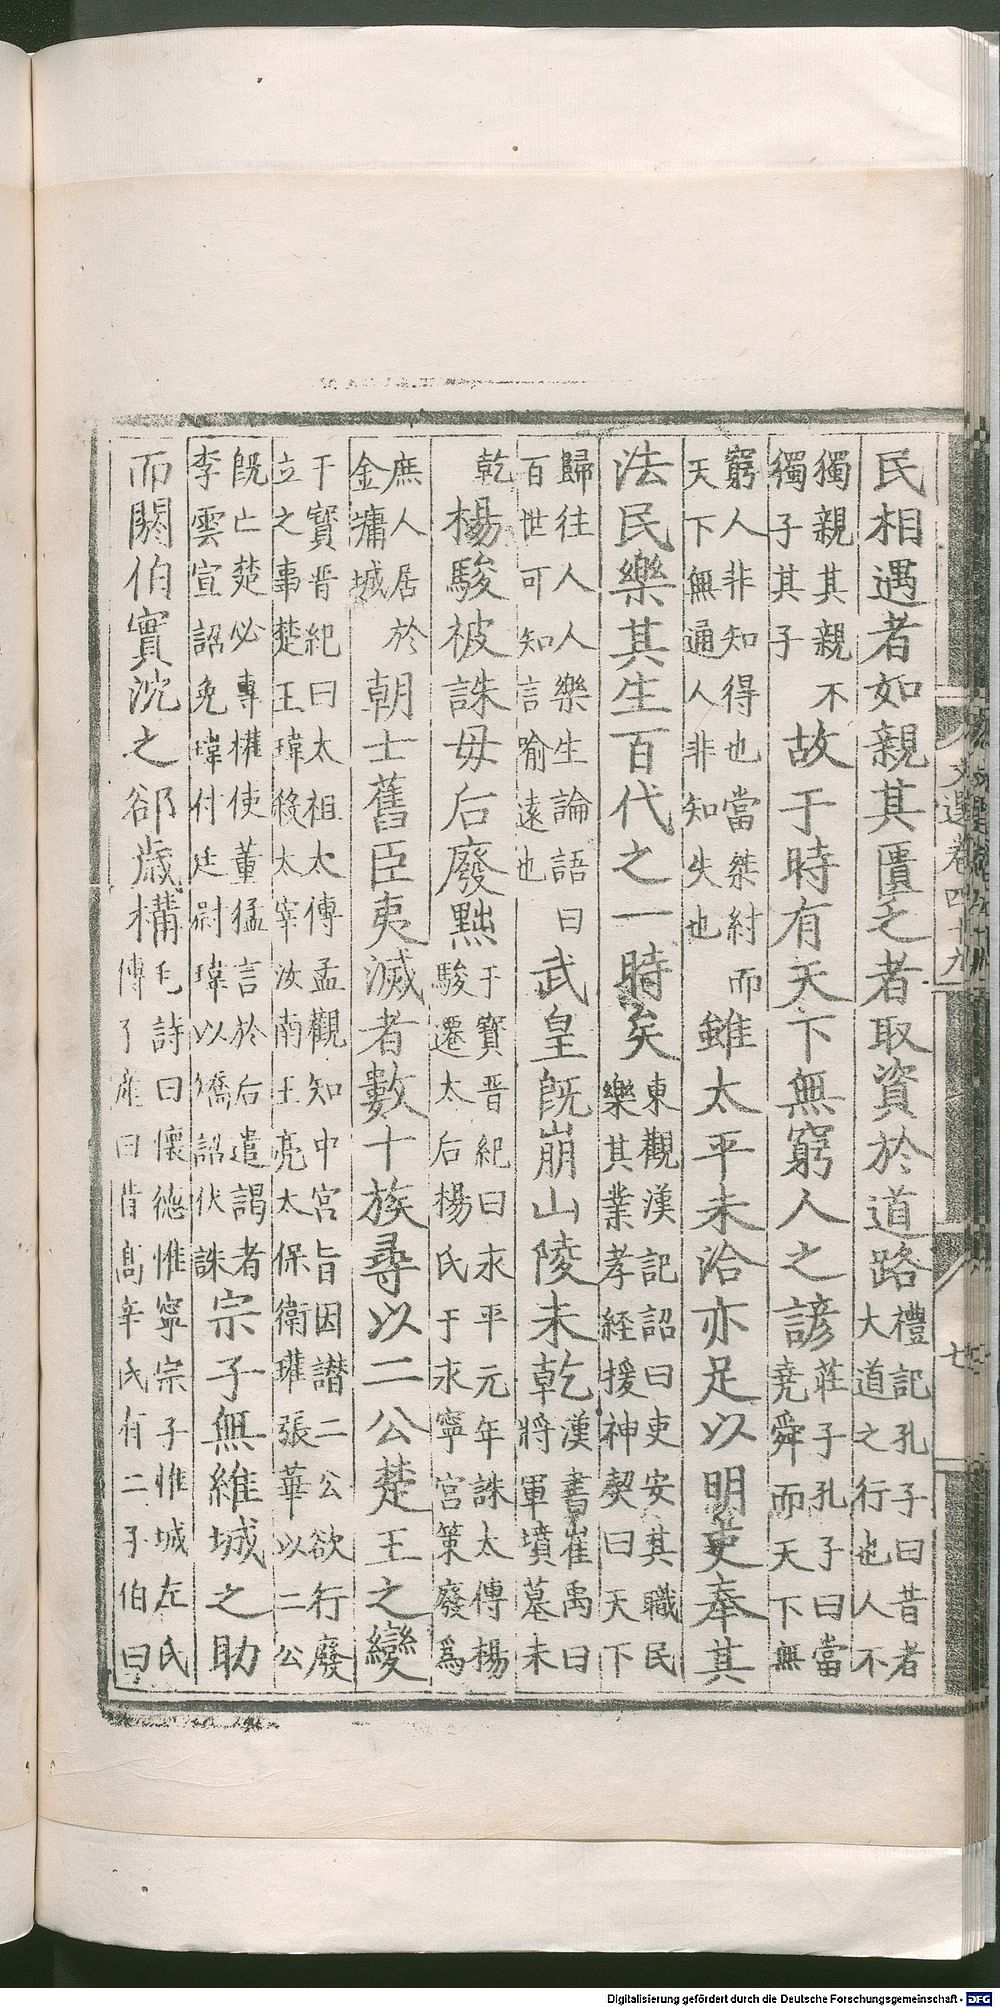 民相遇者如親其匱乏者取資於道路禮記孔子曰昔者大道之行也人不
獨親其親不獨子其子故于時有天下無窮人之諺莊子孔子曰當堯舜而天下無
窮人非知得也當桀紂而天下無通人非知失也雖太平未洽亦足以明吏奉其
法民樂其生百代之一時矣東觀漢記詔曰吏安其職民樂其業孝経援神契曰天下
歸往人人樂生論語曰百世可知言喻遠也武皇既崩山陵未乾漢書崔禹曰將軍墳墓未
乾楊駿被誅母后廢黜于寳晉紀曰永平元年誅太傅楊駿遷太后楊氏于永寧宮策廢爲
庶人居於金墉城朝士舊臣夷滅者數十族尋以二公楚王之變
干寳晉紀曰太祖太傅孟觀知中宮旨因譖二公欲行廢立之事楚王瑋殺太宰汝南王亮太保衛瓘張華以二公
既亡楚必專權使董猛言於后遣謁者李雲宣詔免瑋付廷尉瑋以矯詔伏誅宗子無維城之助
而閼伯實沈之郤歲構毛詩曰懷德惟寧宗子惟城左氏傳子産曰昔高辛氏有二子伯曰
文選卷四十九
七
Digitalisierung gefördert durch die Deutsche Forschungsgemeinschaft - DFG